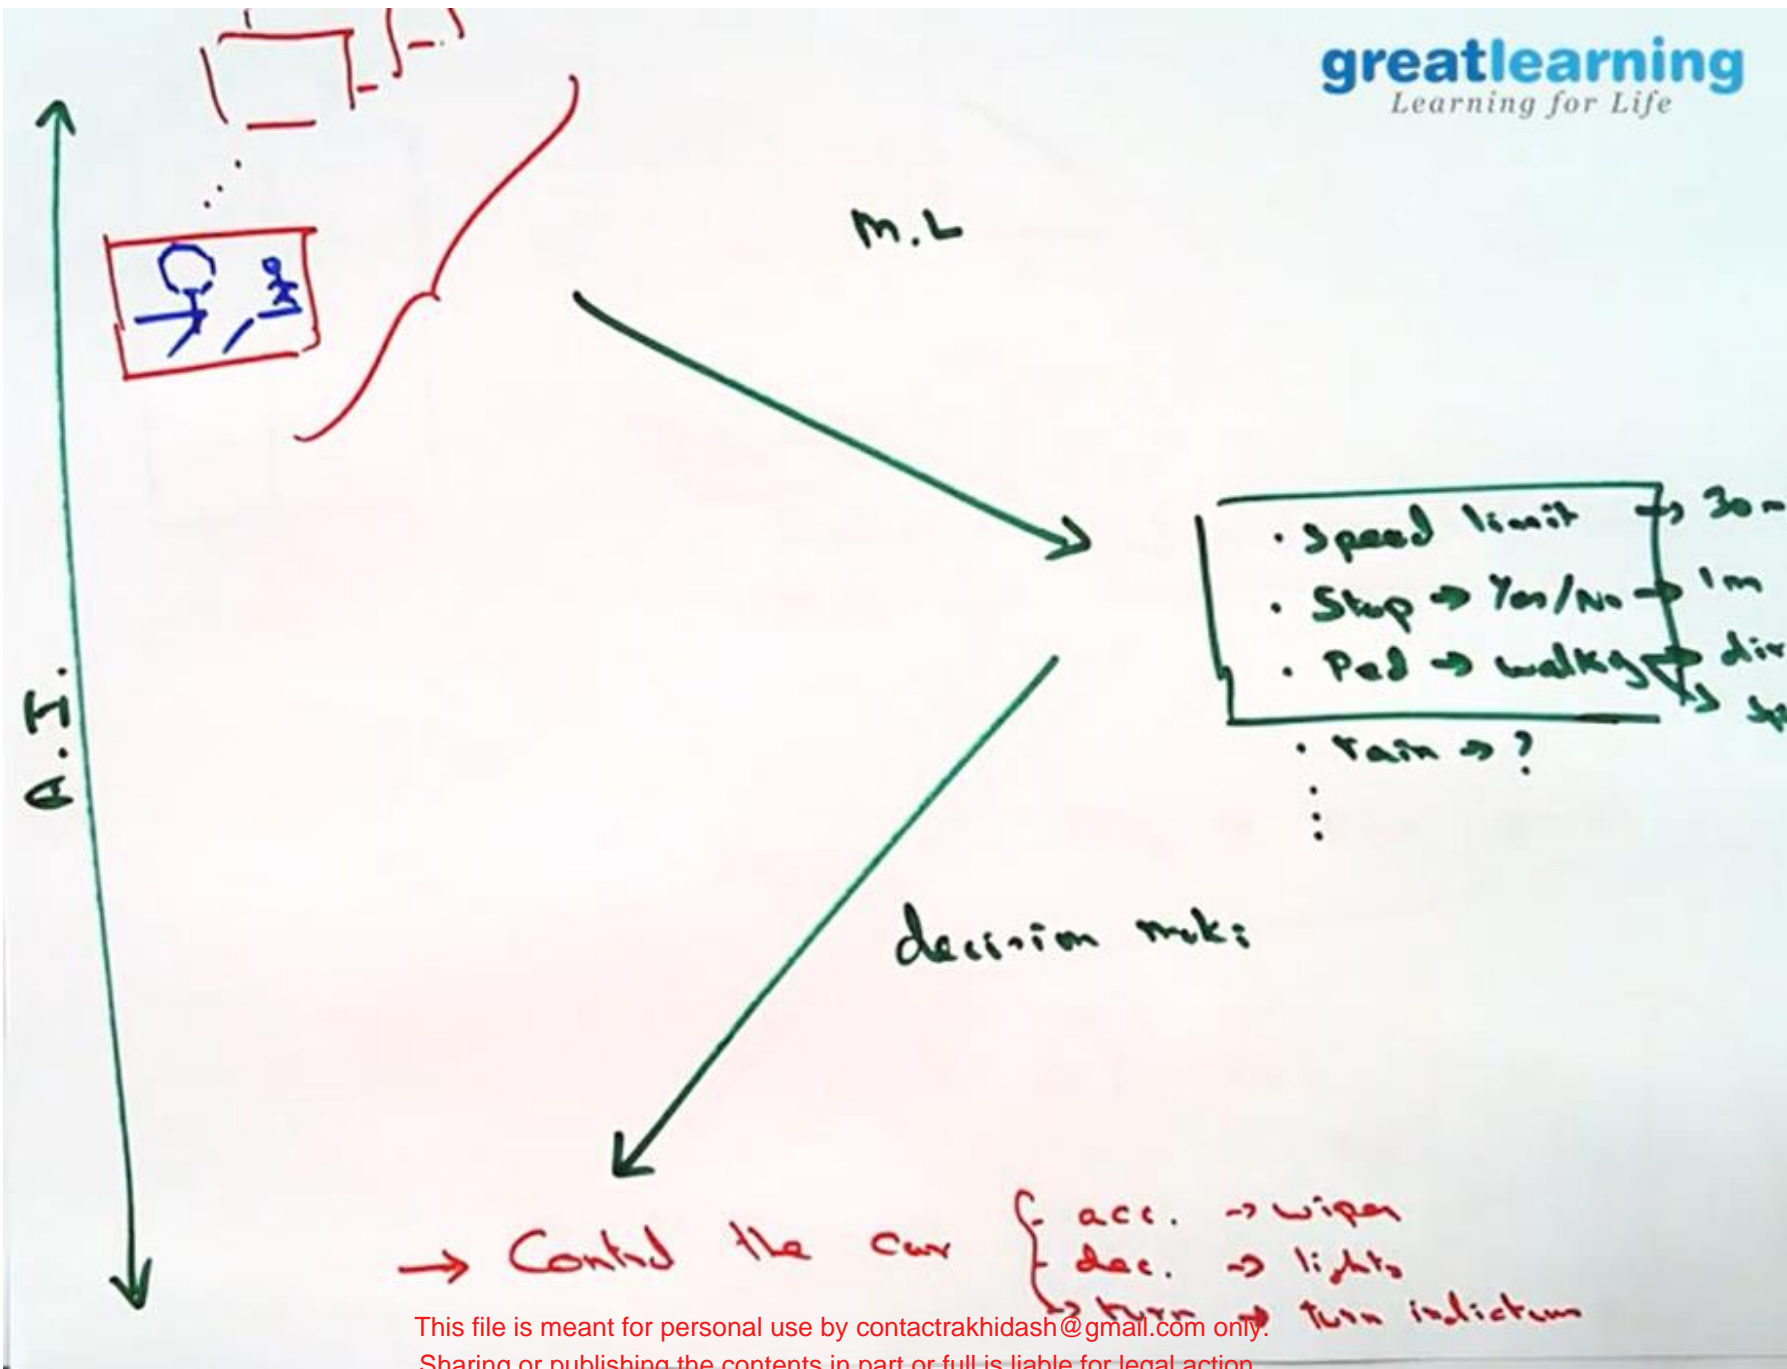 greatlearning
Learning for Life
M.L
A.I.
• Speed limit → 30
• Stop → Yes/No → 1m
• Ped → walkg → dir
• rain → ?
decision
→ Control the car
- acc. → wiper
- dec. → lights
→ turn → turn indicators
This file is meant for personal use by contactrakhidash@gmail.com only.
Sharing or publishing the contents in part or full is liable for legal action.